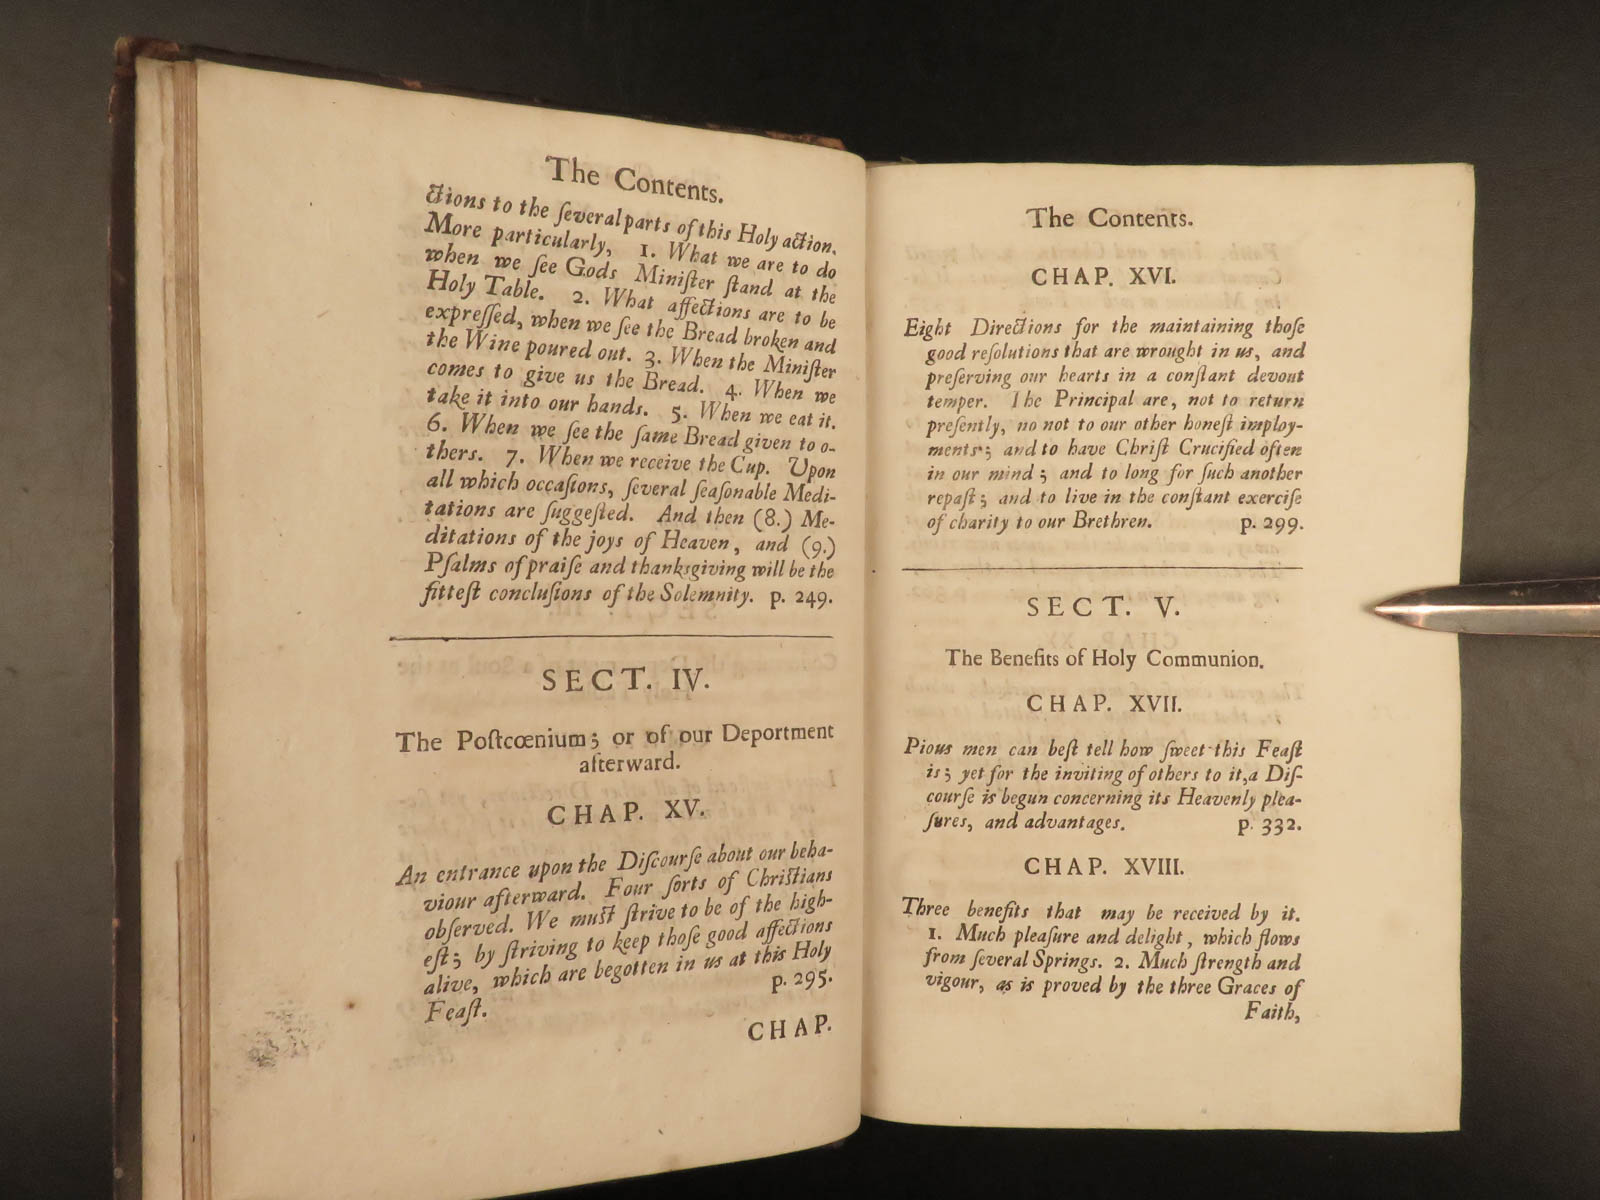 The Contents.
ctions to the ſeveral parts of this Holy action.
More particularly, 1. What we are to do
when we ſee Gods Miniſter ſtand at the
Holy Table. 2. What affections are to be
expreſſed, when we ſee the Bread broken and
the Wine poured out. 3. When the Miniſter
comes to give us the Bread. 4. When we
take it into our hands. 5. When we eat it.
6. When we ſee the ſame Bread given to o-
thers. 7. When we receive the Cup. Upon
all which occaſions, ſeveral ſeaſonable Medi-
tations are ſuggeſted. And then (8.) Me-
ditations of the joys of Heaven, and (9.)
Pſalms of praiſe and thankſgiving will be the
fitteſt concluſions of the Solemnity. p. 249.
SECT. IV.
The Poſtcœnium; or of our Deportment
afterward.
CHAP. XV.
An entrance upon the Diſcourſe about our beha-
viour afterward. Four ſorts of Chriſtians
obſerved. We muſt ſtrive to be of the high-
eſt; by ſtriving to keep thoſe good affections
alive, which are begotten in us at this Holy
Feaſt. p. 295.
CHAP.
The Contents.
CHAP. XVI.
Eight Directions for the maintaining thoſe
good reſolutions that are wrought in us, and
preſerving our hearts in a conſtant devout
temper. The Principal are, not to return
preſently, no not to our other honeſt imploy-
ments; and to have Chriſt Crucified often
in our mind; and to long for ſuch another
repaſt; and to live in the conſtant exerciſe
of charity to our Brethren. p. 299.
SECT. V.
The Benefits of Holy Communion.
CHAP. XVII.
Pious men can beſt tell how ſweet this Feaſt
is; yet for the inviting of others to it, a Diſ-
courſe is begun concerning its Heavenly plea-
ſures, and advantages. p. 332.
CHAP. XVIII.
Three benefits that may be received by it.
1. Much pleaſure and delight, which flows
from ſeveral Springs. 2. Much ſtrength and
vigour, as is proved by the three Graces of
Faith,